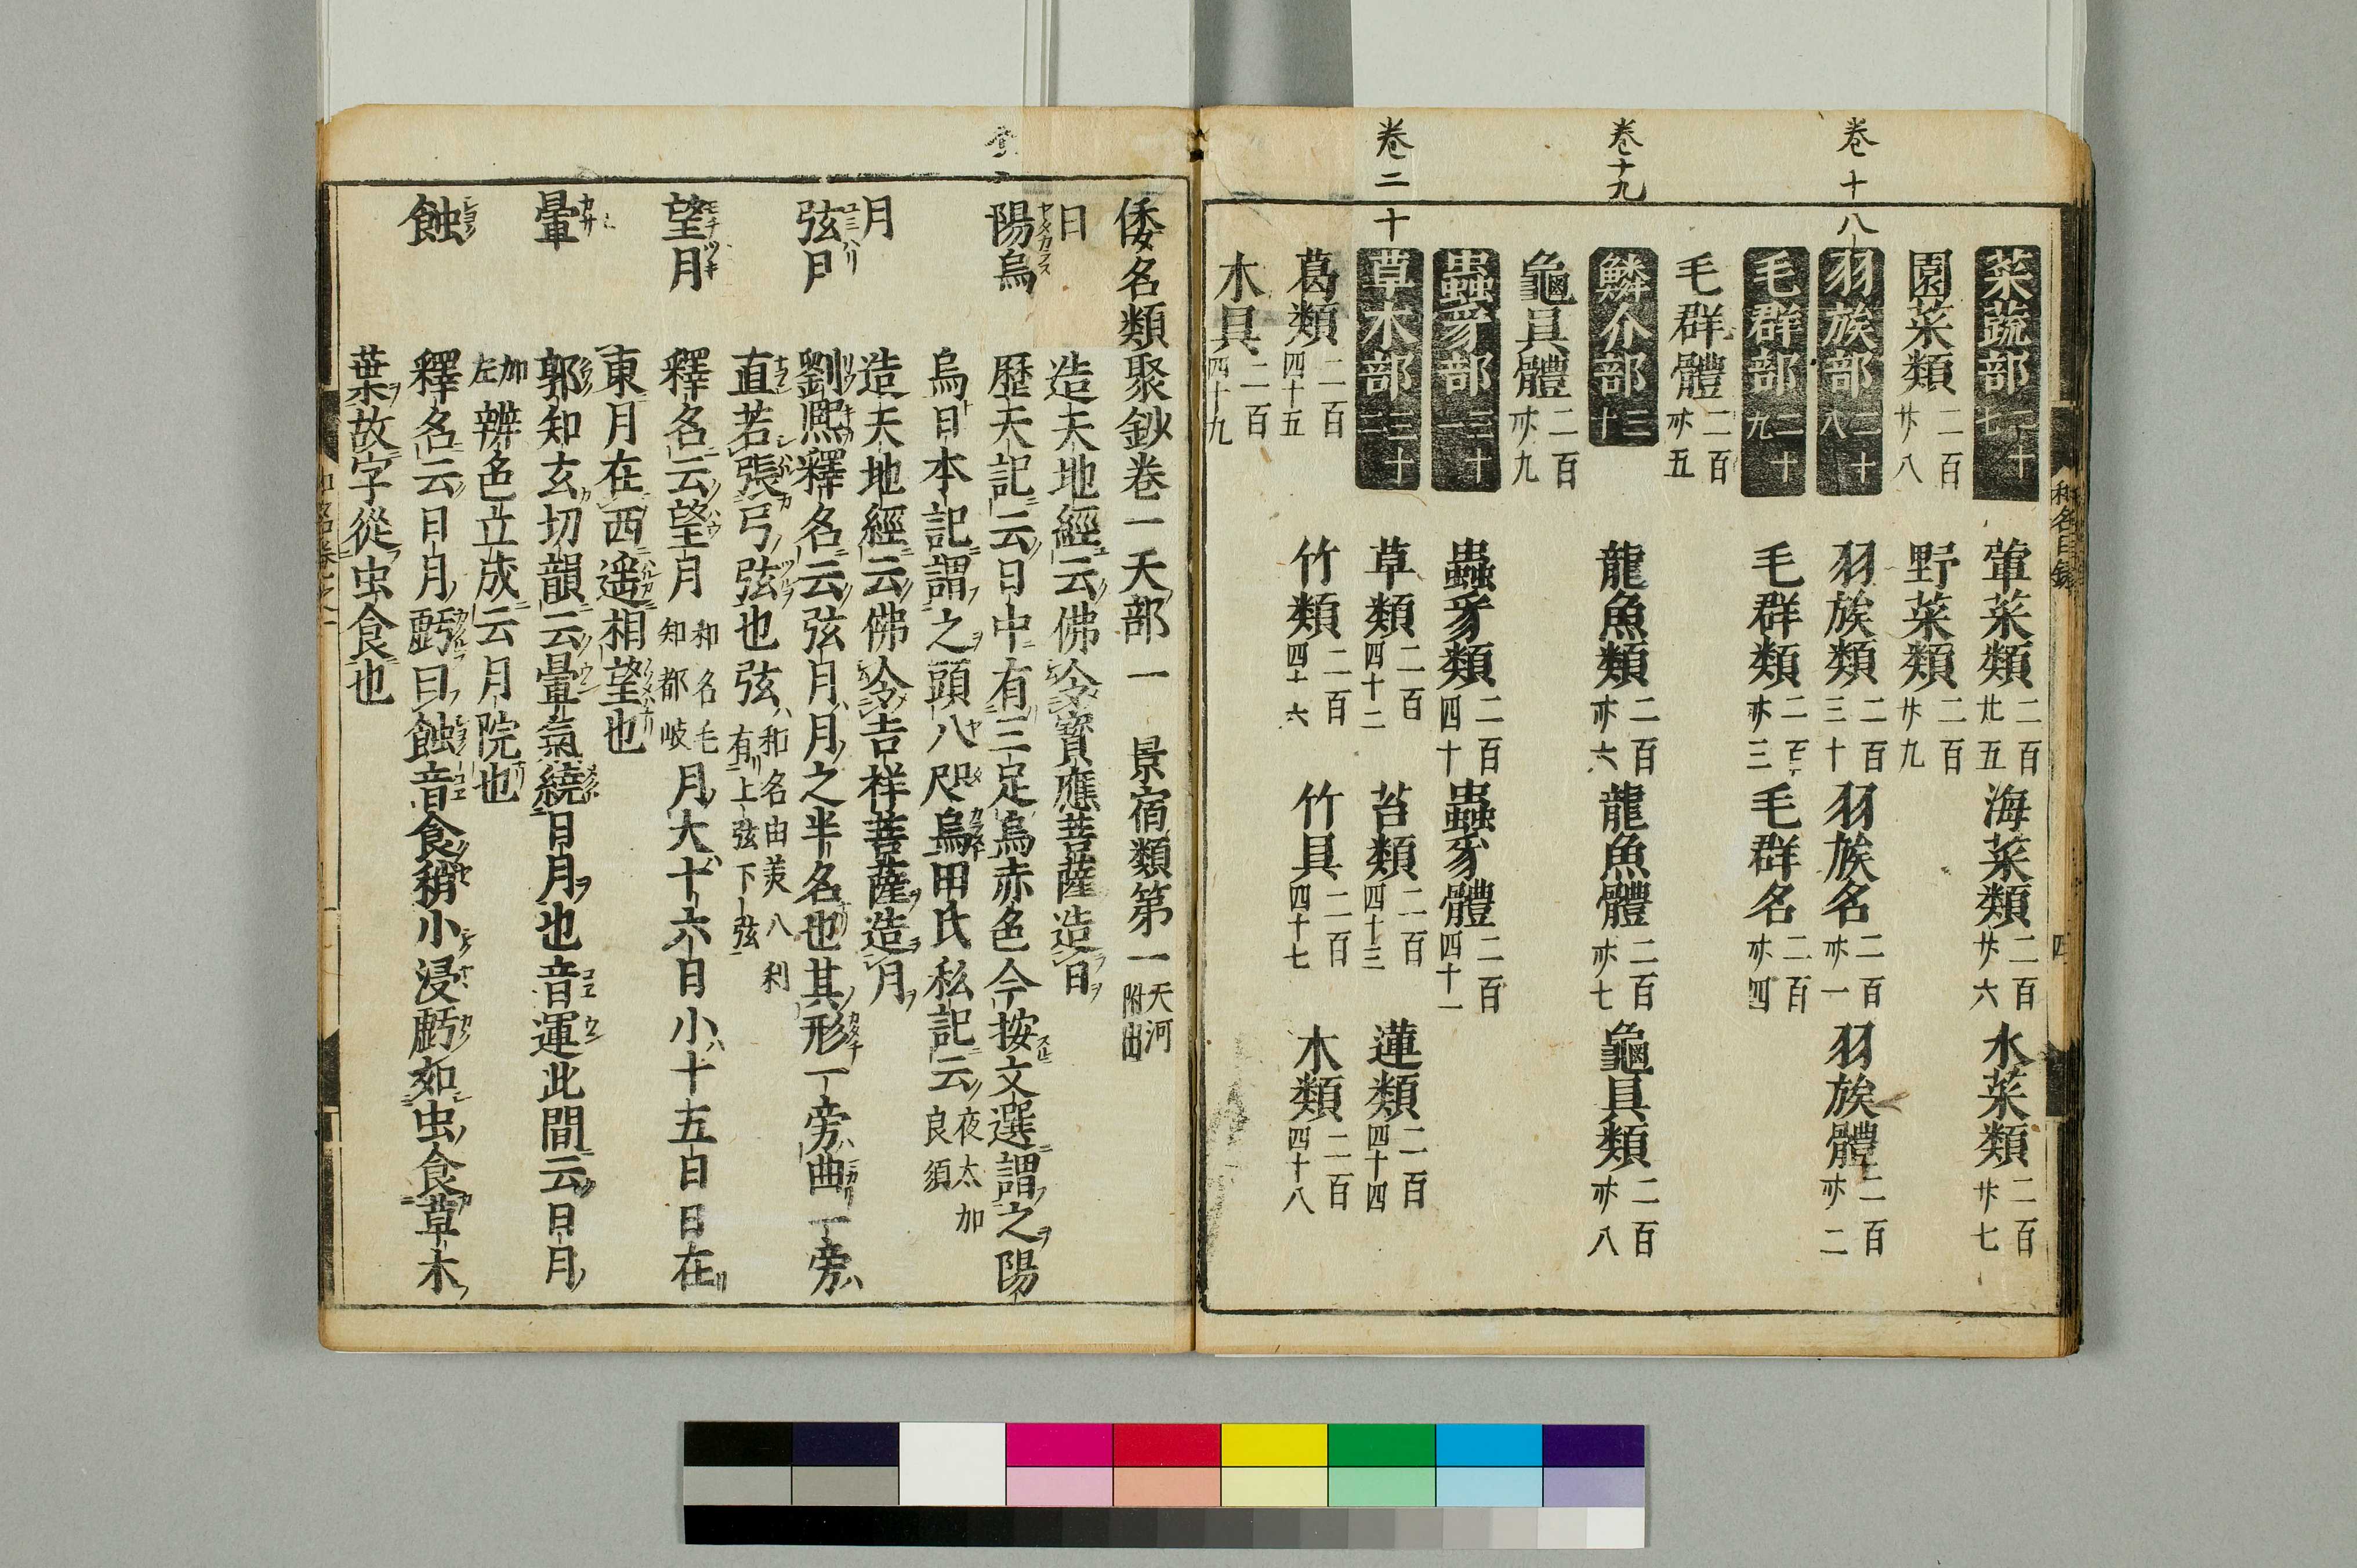 卷十八
卷十九
卷二十
菜蔬部二十七 葷菜類二百廿五 海菜類二百廿六 水菜類二百廿七
園菜類二百廿八 野菜類二百廿九
羽族部二十八 羽族類二百三十 羽族名二百卅一 羽族體二百卅二
毛群部二十九 毛群類二百卅三 毛群名二百卅四
毛群體二百卅五
鱗介部三十 龍魚類二百卅六 龍魚體二百卅七 龜具類二百卅八
龜具體二百卅九
蟲豸部三十一 蟲豸類二百四十 蟲豸體二百四十一
草木部三十二 草類二百四十二 苔類二百四十三 蓮類二百四十四
葛類二百四十五 竹類二百四十六 竹具二百四十七 木類二百四十八
木具二百四十九
倭名類聚鈔卷一天部一 景宿類第一天河附出
日 造天地經云佛令寶應菩薩造日
陽烏 歷天記云日中有三足烏赤色今按文選謂之陽
烏日本記謂之頭八咫烏田氏私記云夜太加良須
月 造天地經云佛令吉祥菩薩造月
弦月 劉熙釋名云弦月月之半名也其形一旁曲一旁
直若張弓弦也弦和名由美八利有上弦下弦
望月 釋名云望月和名毛知都岐月大十六日小十五日日在
東月在西遥相望也
暈 郭知玄切韻云暈氣繞日月也音運此間云日月
加左辨色立成云月院也
蝕 釋名云日月虧曰蝕音食稍小浸虧如虫食草木
葉故字從虫食也